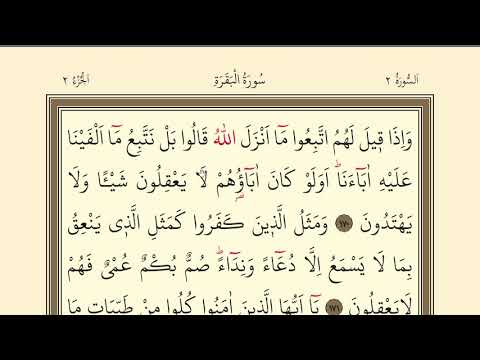 اَلسُّورَةُ ٢ سُورَةُ الْبَقَرَةِ اَلْجُزْءُ ٢
وَاِذَا قٖيلَ لَهُمُ اتَّبِعُوا مَٓا اَنْزَلَ اللّٰهُ قَالُوا بَلْ نَتَّبِعُ مَٓا اَلْفَيْنَا
عَلَيْهِ اٰبَٓاءَنَاؕ اَوَلَوْ كَانَ اٰبَٓاؤُ۬هُمْ لَا يَعْقِلُونَ شَيْـًٔا وَلَا
يَهْتَدُونَ ﴿١٧٠﴾ وَمَثَلُ الَّذٖينَ كَفَرُوا كَمَثَلِ الَّذٖى يَنْعِقُ
بِمَا لَا يَسْمَعُ اِلَّا دُعَٓاءً وَنِدَٓاءًؕ صُمٌّ بُكْمٌ عُمْىٌ فَهُمْ
لَا يَعْقِلُونَ ﴿١٧١﴾ يَٓا اَيُّهَا الَّذٖينَ اٰمَنُوا كُلُوا مِنْ طَيِّبَاتِ مَا